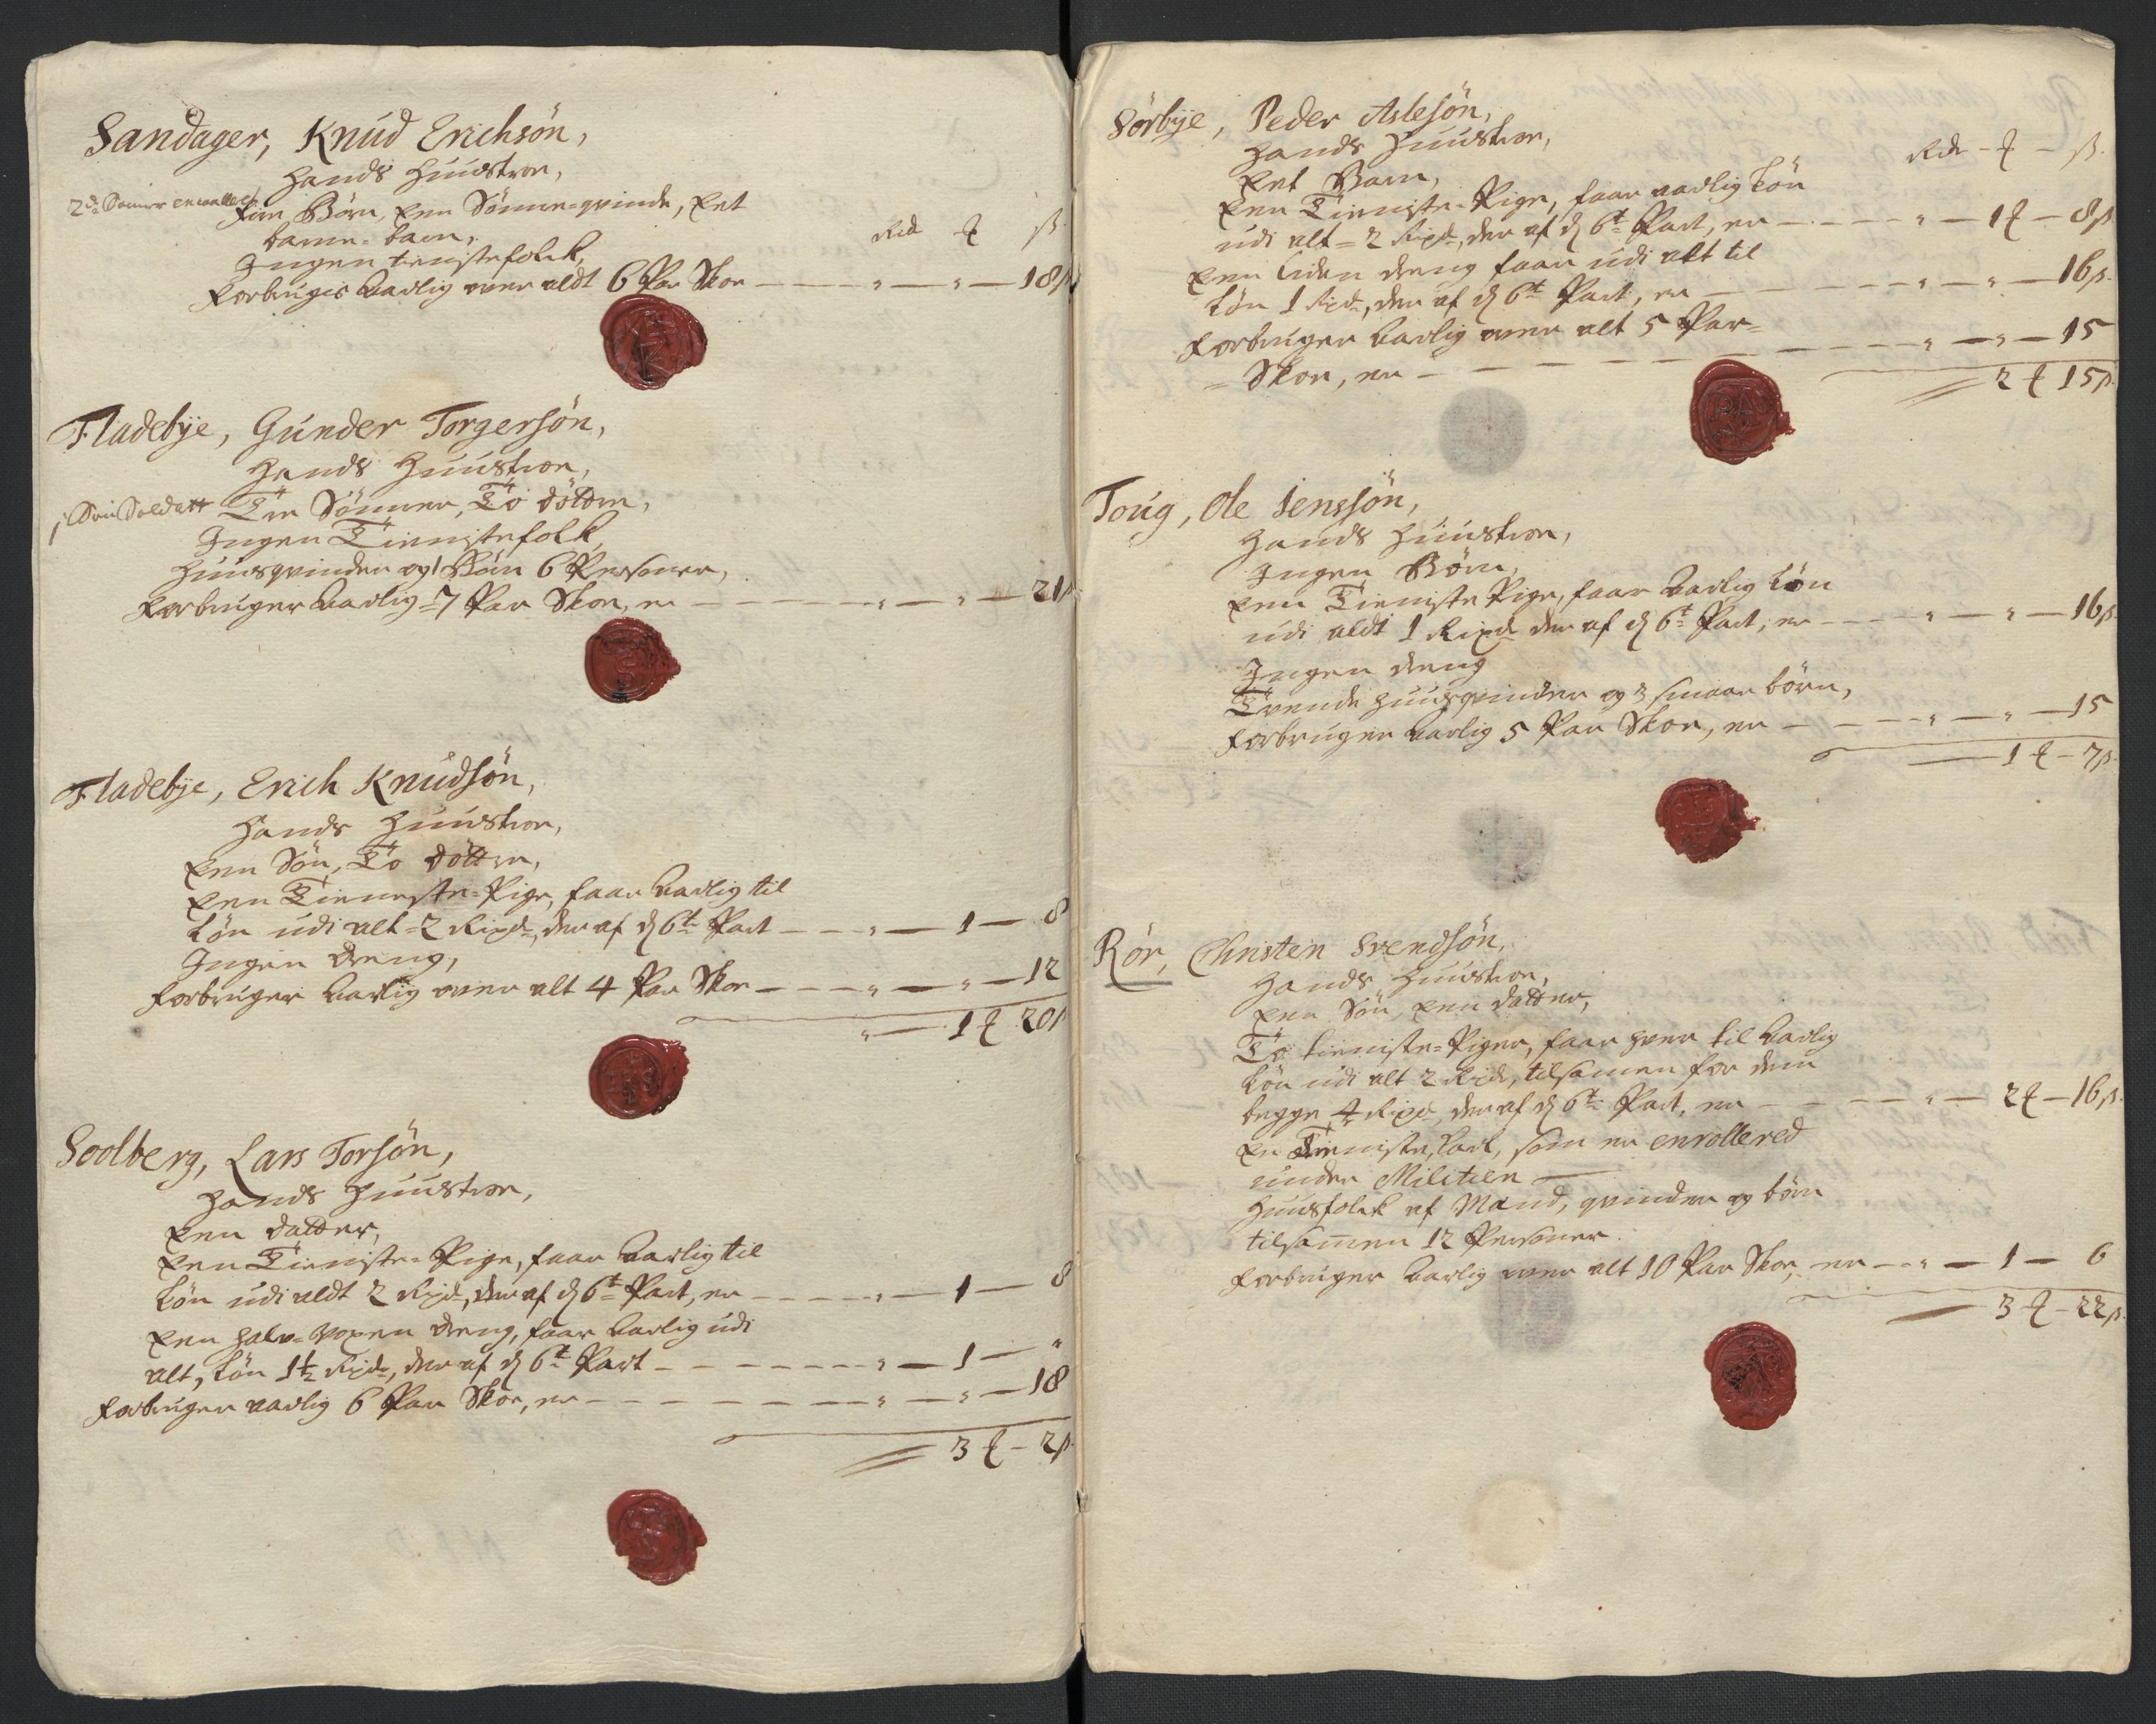 Sandager, Knud Erichsøn,
Hands Huustroe,
2de Sønner enroll
Fire Børn, Een Sönne-qvinde, Eet
barne-barn,
Rd ƒ ß
Ingen tienistefolck,
Forbruges aarlig over aldt 6 Par Skoe — " — " — 18ß
Fladebÿe, Gunder Torgersøn,
Hands Huustroe,
1 Søn Soldatt
Tre Sönner, To döttre,
Ingen Tienistefolk,
Huusqvinder og Börn 6 Personer,
Forbruger aarlig 7 Par Skoe, er — " — " — 21ß
Fladebÿe, Erich Knudsøn,
Hands Huustroe,
Een Søn, To döttre,
Een Tieneste-Pige, faar aarlig til
Løn udi alt 2 Rixdr, der af dend 6te Part — " — 1 — 8
Ingen dreng,
Forbruger aarlig over alt 4 Par Skoe — " — " — 12
" — 1 ƒ 20ß
Soolberg, Lars Torsøn,
Hands Huustroe,
Een datter,
Een Tieniste-Pige, faar aarlig til
Løn udi aldt 2 Rixdr, der af dend 6te Part, er — " — 1 — 8
Een halv-voxen dreng, faar aarlig udi
alt, Løn 1½ Rixdr, der af dend 6te Part — " — 1 — "
Forbruger aarlig 6 Par Skoe, er — " — " — 18
3 ƒ — 2ß
Sörbÿe, Peder Aslesøn,
Hands Huustroe,
Rdr — ƒ — ß
Eet Barn,
Een Tieniste-Pige, faar aarlig Løn
udi alt 2 Rixdr, der af dend 6te Part, er — " — 1ƒ — 8ß
Een liden dreng faar udi alt til
Løn 1 Rixdr, der af dend 6te Part, er — " — " — 16ß
Forbruger aarlig over alt 5 Par-
-Skoe, er — " — " — 15
2 ƒ 15ß
Toug, Ole Jenssøn,
Hands Huustroe,
Ingen Börn,
Een Tieniste Pige, faar aarlig Løn
udi aldt 1 Rixdr der af dend 6te Part, er — " — " — 16ß
Ingen dreng
Trende Huusqvinder og 3 smaae börn,
Forbruger aarlig 5 Par Skoe, er — " — " — 15
1 ƒ — 7ß
Rör, Christen Svendsøn,
Hands Huustroe,
Een Søn, Een datter,
To tieniste-Piger, faar hver til aarlig
Løn udi alt 2 Rixdr, tilsamen for dem
begge 4 Rixdr, der af dend 6te Part, er — " — 2ƒ — 16ß
En Tieniste Karl, som er enrollered
under Militien
Huusfolck af Mand, qvinder og börn
tilsamen 12 Personer
Forbruger aarlig over alt 10 Par Skoe, er — " — 1 — 6
3 ƒ — 22ß